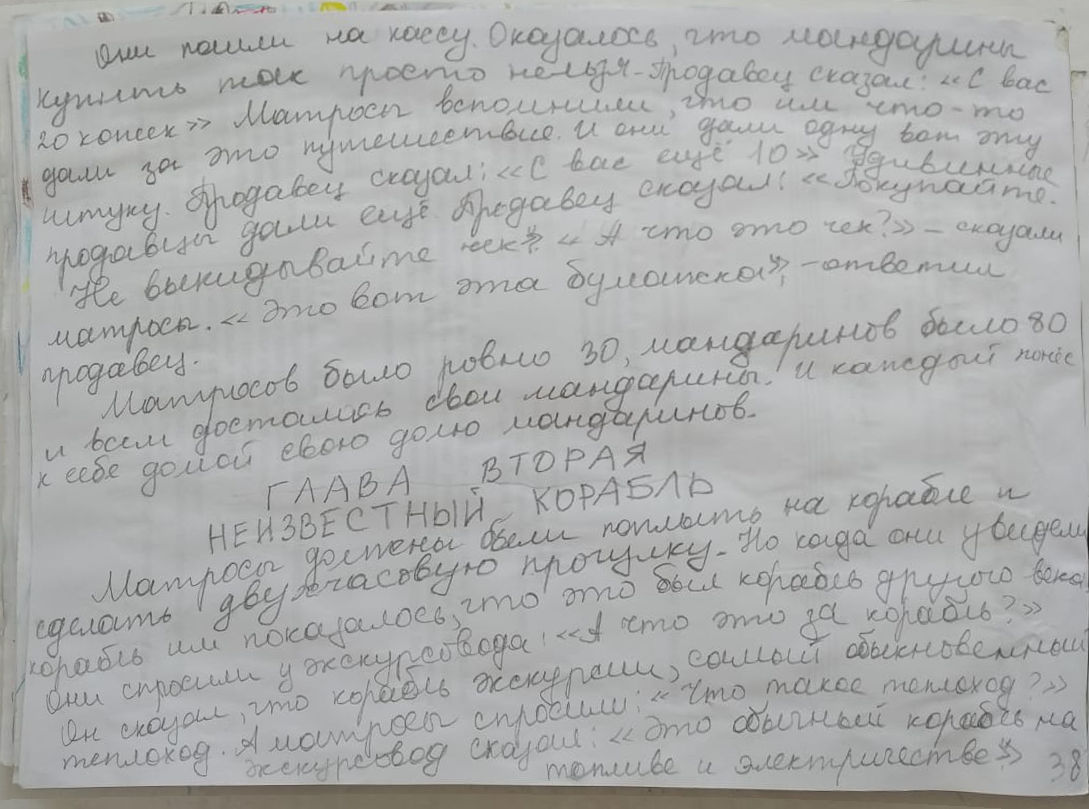 Они пошли на кассу. Оказалось, что мандарины
купить так просто нельзя. Продавец сказал: «С вас
20 копеек» Матросы вспомнили, что им что-то
дали за это путешествие. И они дали одну вот эту
штуку. Продавец сказал: «С вас ещё 10» Удивинные
продавцы дали ещё. Продавец сказал: «Покупайте.
Не выкидывайте чек». «А что это чек?» – сказали
матросы. «Это вот эта бумашка», – ответил
продавец.
Матросов было ровно 30, мандаринов было 80
и всем достались свои мандарины. И каждый понёс
к себе домой свою долю мандаринов.
ГЛАВА ВТОРАЯ
НЕИЗВЕСТНЫЙ КОРАБЛЬ
Матросы должены были поплыть на корабле и
сделать двухчасовую прогулку. Но когда они увидели
корабль им показалось, что это был корабль другого века
Они спросили у экскурсовода: «А что это за корабль?»
Он сказал, что корабль экскурсии, самый обыкновенный
теплоход. А матросы спросили: «Что такое теплоход?»
Экскурсовод сказал: «Это обычный корабль на
топливе и электричестве».
38